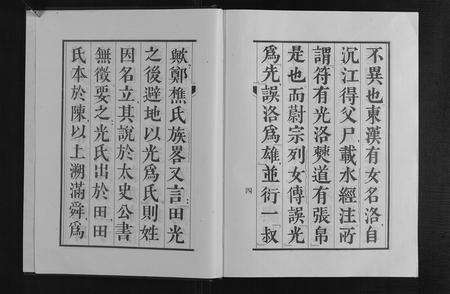 不異也東漢有女名洛自
沉江得父尸載水經注所
謂符有光洛僰道有張帛
是也而蔚宗列女傳誤光
為先誤洛為雄並衍一叔
四
歟鄭樵氏族畧又言田光
之後避地以光為氏則姓
因名立其說於太史公書
無徵要之光氏出於田田
氏本於陳以上溯滿舜為